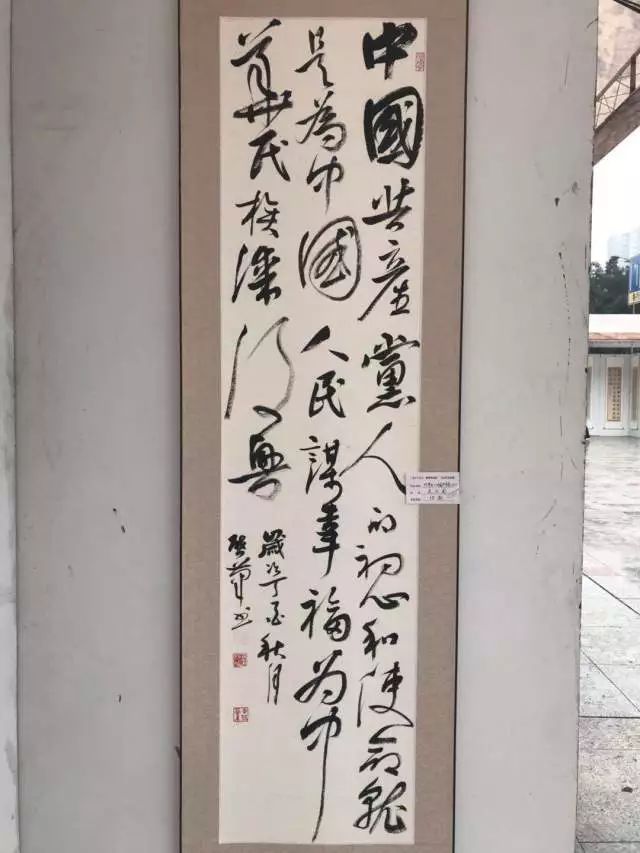 中國共產黨人的初心和使命就
是為中國人民謀幸福为中
華民族謀復興
歲次丁酉秋月